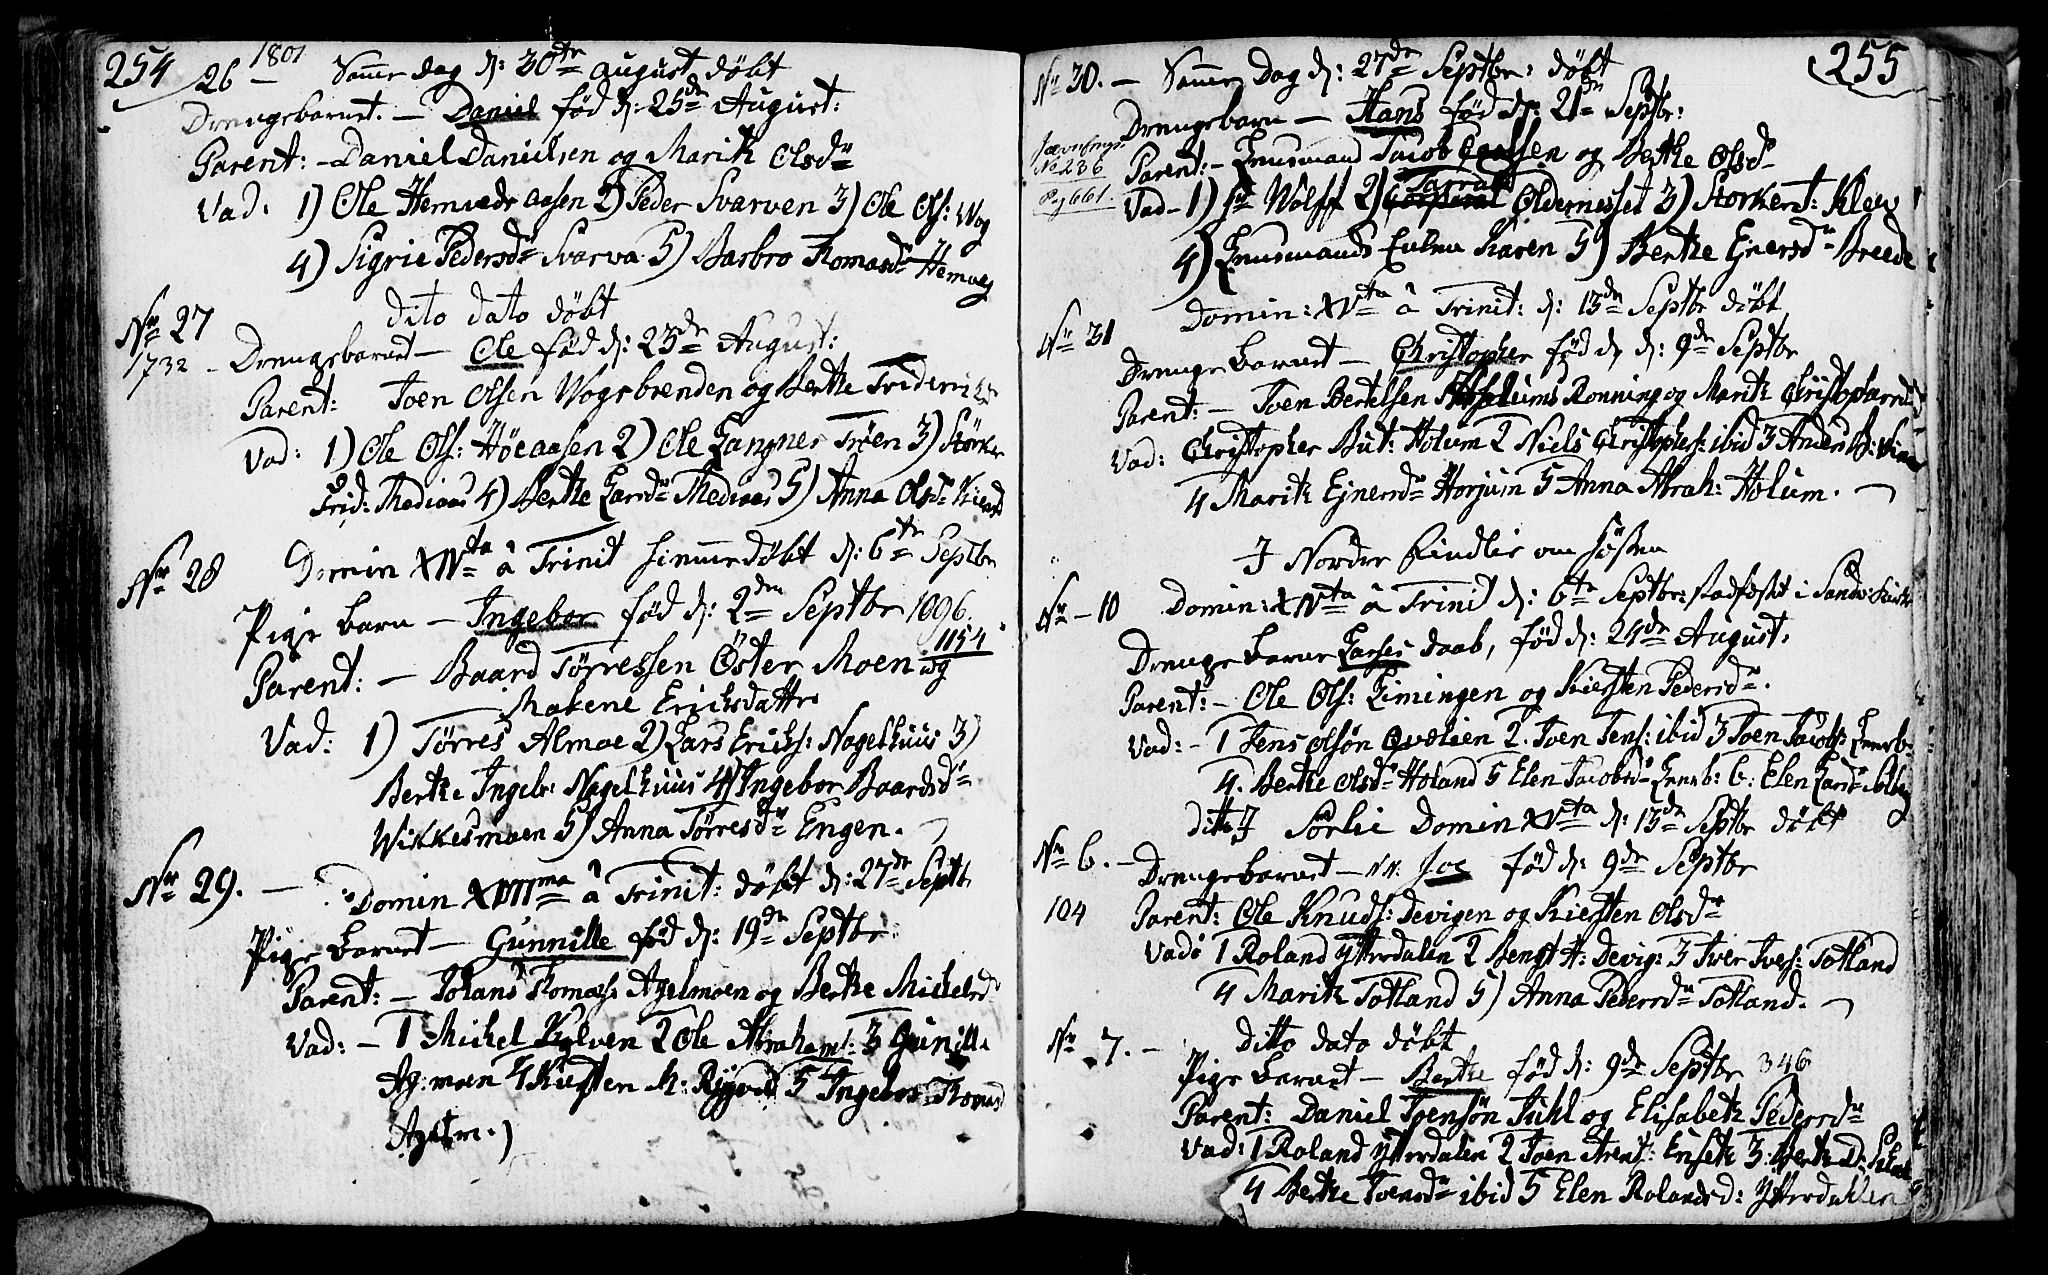 254
26 1801 Samme dag d: 30te august døbt
Drengebarnet. — Daniel fød d: 25de August:
Parent: - Daniel Danielsen og Marith Olsdr
Vad: 1) Ole Hemnedr aasen 2) Peder Svarven 3) Ole Ols: Wog
4) Sigrie Pedersdr Svarva 5) Barbro Thomasdr Hemneg
Nr 27 dito dato døbt
1732 - Drengebarnet — Ole fød d: 23de August:
Parent: Joen Olsen Wogsbrenden og Berthe Friderichs
Vad: 1) Ole Ols: Høeaasen 2) Ole Langnes Trøen 3) Størker
Frid: Mediaas 4) Berthe Larsdr Mediaas 5) Anna Olsdr
Nr 28 Domin XIVta â Trinit hiemmedøbt d: 6te Septbr
Pige barn — Ingebor fød d: 2den Septbr 1096.
1154
Parent: — Baard Tørressen Øster Moen og
Malene Ericksdatter
Vad: 1) Tørres Almoe 2) Lars Ericks: Nagelhuus 3)
Berthe Ingebr: Nagelhuus 4) Ingebor Baardsdr
Wikkesmoen 5) Anna Tørresdr Engen.
Nr 29. — Domin XVIIma â Trinit: døbt d: 27de Septb
Pige barnet — Gunnille fød d: 19de Septbr
Parent: — Johans Thomass: Agelmoen og Berthe Michelsd
Vad: — 1 Michel Kolven 2 Ole Abrahams: 3 Gunill.
Ag: moen 4 Kiersten M: Rygvold 5 Ingebor Thomasd
Agelm.)
255
Nr 30. — Samme Dag d: 27de Septbr: døbt
Drengebarn — Hans fød d: 21de Septbr:
Jævnfings
No 236
Pag 661.
Parent: - Lensmand Jacob Coldsen og Berthe Olsdr
Vad - 1) Hr Wolff 2) Corporal Oldernesset 3) Storkert: Klev
4) Lensmands Enken Karen 5) Berthe Ejnersdr Breede
Nr 31 Domin: XVta â Trinit: d: 13de Septbr døbt
Drengebarnet — Christopher fød d: 9de Septbr
Parent: — Joen Bertelsen Holums Rønning og Marith Christophersd
Vad: Christopher But: Holum 2 Niels Christophers: ibid 3 Anders
4 Marith Ejnersdr Horjum 5 Anna Abrah: Holum.
I Nordre Findlie om høsten
Nr - 10 Domin: XIVta â Trinit d: 6te Septbr: stadfæstet i Sandv: Kirke
Drengebarnet Larses daab, fød d: 24de August.
Parent: - Ole Ols: Limingen og Kiersten Pedersdr.
Vad: - 1 Jens Olsøn Qvelien 2. Joen Jens: ibid 3 Joen Jacobs:
4. Berthe Olsdr Holand 5 Elen Jacobsdr 6: Elen Larsdr
ditto I Sørlie Domin XVta d: 13de Septbr døbt
Nr 6. — Drengebarnet — N: Joe fød d: 9de Septbr
104 Parent: Ole Knuds: Devigen og Kiersten Olsdr
Vad: 1 Roland Ytterdalen 2 Bengt H: Devig: 3 Iver Ives: Totland
4 Marith Totland 5) Anna Pedersdr Totland.
Nr 7. — Ditto dato døbt
Pige barnet — Berthe fød d: 9de Septbr 346
Parent: Daniel Joensøn Juhl og Elisabeth Pedersdr
Vad: 1 Roland Ytterdalen 2 Joen Arent: Ensetr 3 Berthe D:
4 Berthe Joensdr ibid 5 Elen Rolandsd: Ytterdalen